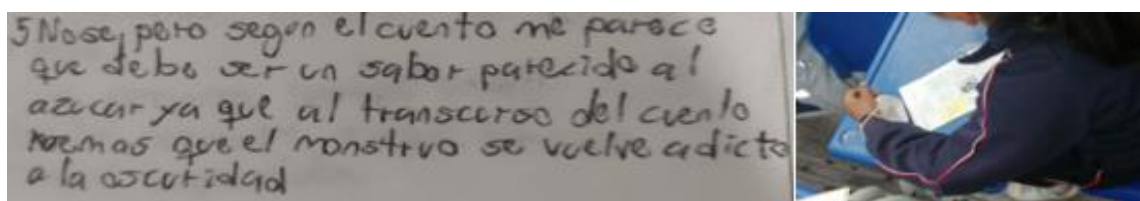 5 Nose, pero segun el cuento me parece
que debe ser un sabor parecido al
azucar ya que al transcurso del cuento
vemos que el monstruo se vuelve adicto
a la oscuridad